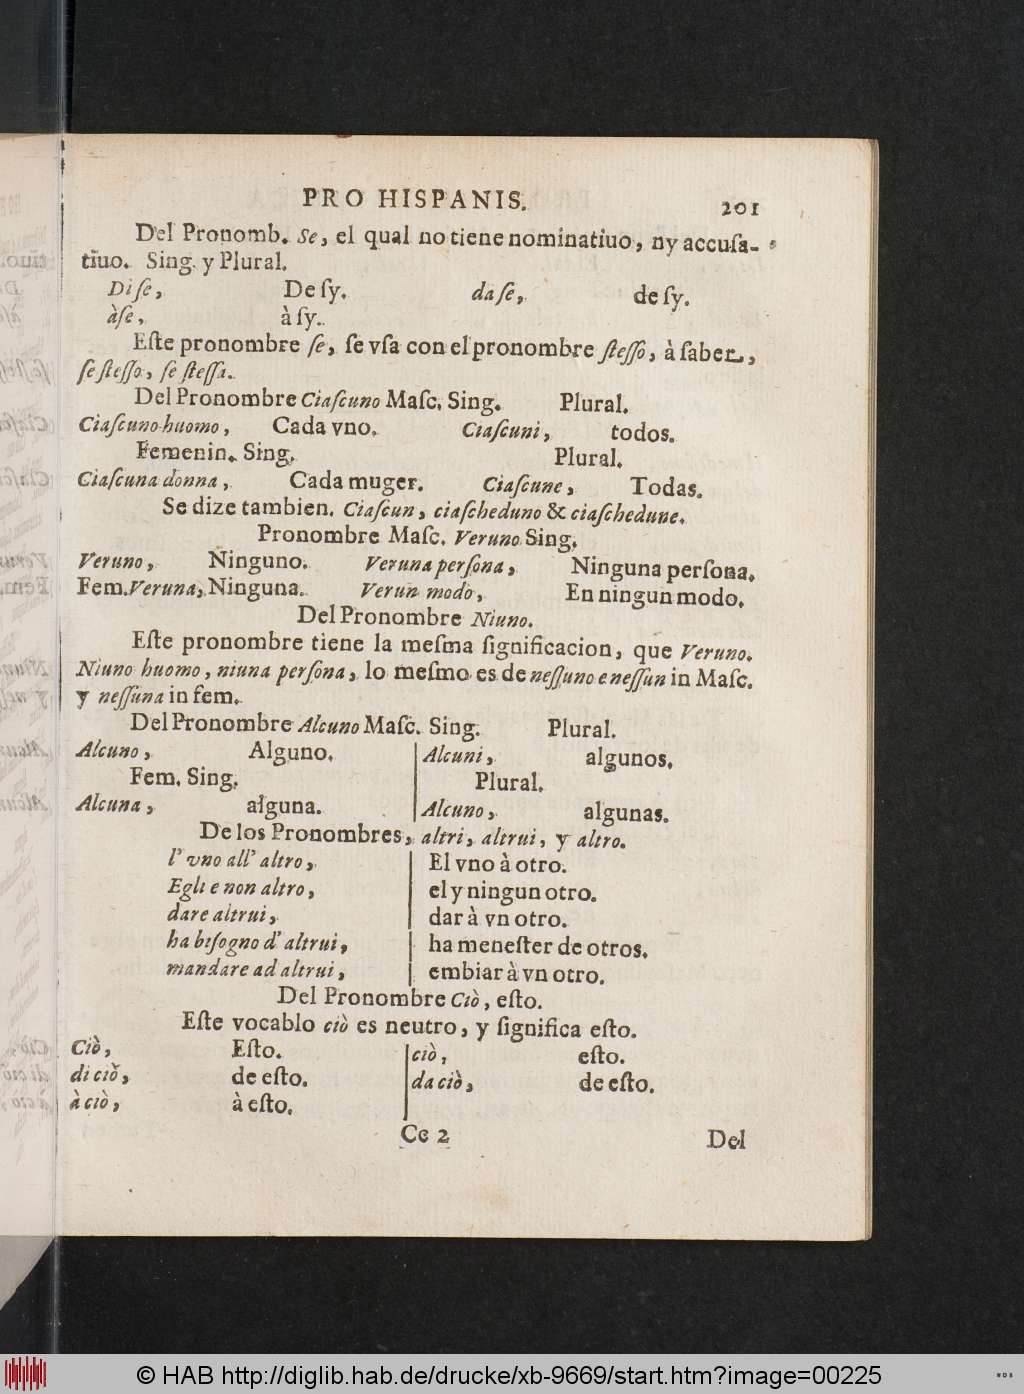 PRO HISPANIS. 201
Del Pronomb. Se, el qual no tiene nominatiuo, ny accuſa-
tiuo. Sing. y Plural.
Di ſe, De ſy. da ſe, de ſy.
à ſe, à ſy.
Eſte pronombre ſe, ſe vſa con el pronombre ſteſſo, à ſaber,
ſe ſteſſo, ſe ſteſſa.
Del Pronombre Ciaſcuno Maſc. Sing. Plural.
Ciaſcuno huomo, Cada vno. Ciaſcuni, todos.
Femenin. Sing. Plural.
Ciaſcuna donna, Cada muger. Ciaſcune, Todas.
Se dize tambien. Ciaſcun, ciaſcheduno & ciaſchedune.
Pronombre Maſc. Veruno Sing.
Veruno, Ninguno. Veruna perſona, Ninguna perſona.
Fem. Veruna, Ninguna. Verun modo, En ningun modo.
Del Pronombre Niuno.
Eſte pronombre tiene la meſma ſignificacion, que Veruno.
Niuno huomo, niuna perſona, lo meſmo es de neſſuno e neſſun in Maſc.
y neſſuna in fem.
Del Pronombre Alcuno Maſc. Sing. Plural.
Alcuno, Alguno. Alcuni, algunos.
Fem. Sing. Plural.
Alcuna, alguna. Alcuno, algunas.
De los Pronombres, altri, altrui, y altro.
l' vno all' altro, El vno à otro.
Egli e non altro, el y ningun otro.
dare altrui, dar à vn otro.
ha biſogno d' altrui, ha meneſter de otros.
mandare ad altrui, embiar à vn otro.
Del Pronombre Ciò, eſto.
Eſte vocablo ciò es neutro, y ſignifica eſto.
Ciò, Eſto. ciò, eſto.
di ciò, de eſto. da ciò, de eſto.
à ciò, à eſto.
Cc 2 Del
© HAB http://diglib.hab.de/drucke/xb-9669/start.htm?image=00225